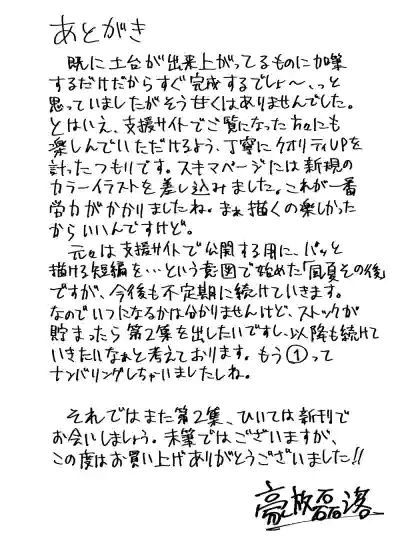 あとがき
既に土台が出来上がってるものに加筆
するだけだからすぐ完成するでしょ〜、っと
思っていましたがそう甘くはありませんでした。
とはいえ、支援サイトでご覧になった方々にも
楽しんでいただけるよう、丁寧にクオリティUPを
計ったつもりです。スキマページには新規の
カラーイラストを差し込みました。これが一番
労力がかかりましたね。まぁ描くの楽しかった
からいいんですけど。
元々は支援サイトで公開する用に、パッと
描ける短編を…という意図で始めた「夏その後」
ですが、今後も不定期に続けていきます。
なのでいつになるかは分かりませんけど、ストックが
貯まったら第2集を出したいですし、以降も続けて
いきたいなぁと考えております。もう①って
ナンバリングしちゃいましたしね。
それではまた第2集、ひいては新刊で
お会いしましょう。末筆ではございますが、
この度はお買い上げありがとうございました!!
豪放磊落